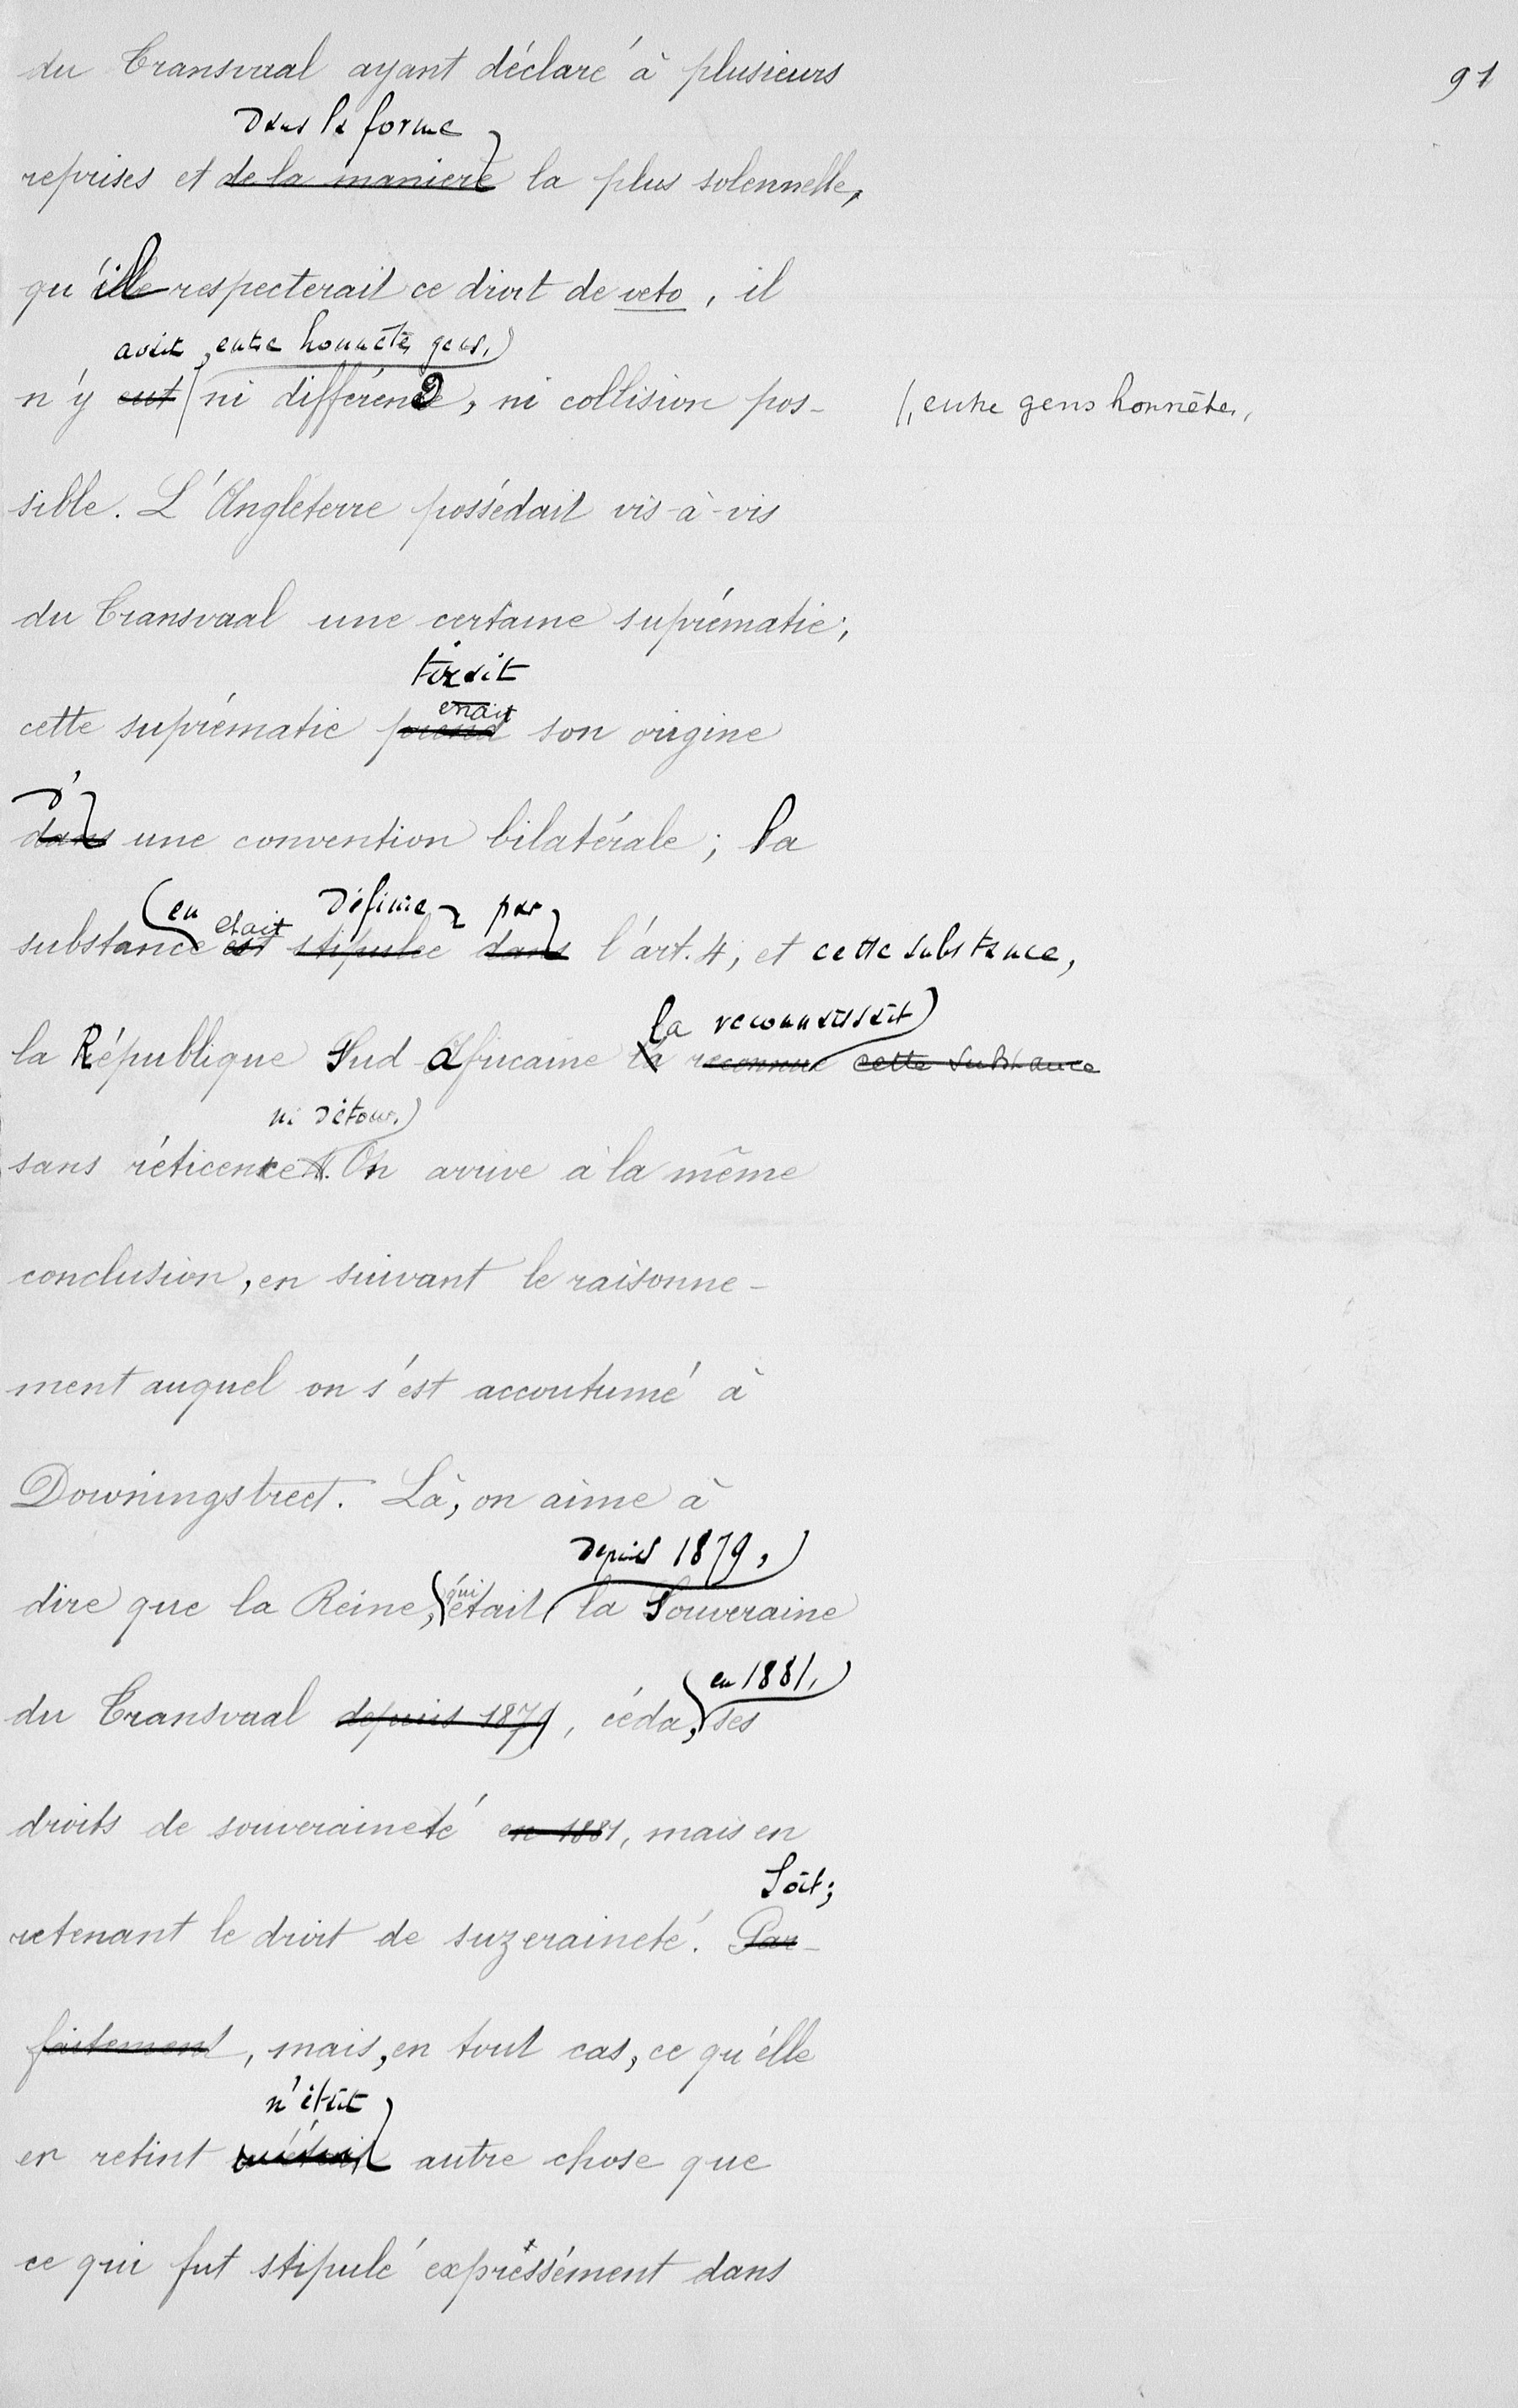 du Transvaal ayant déclaré à plusieurs
91
dans la forme
reprises et de la manière la plus solennelle,
qu'ille respecterait ce droit de veto, il
avait , entre honnêtes gens,
n'y eut ni différend, ni collision pos-
(, entre gens honnêtes,
sible. L'Angleterre possédait vis-à-vis
du Transvaal une certaine suprématie;
tirait
enait
cette suprématie prend son origine
d'
dans une convention bilatérale; la
en était définie par
substance est stipulée dans l'art. 4, et cette substance,
la reconnaissait
la République Sud-Africaine la reconnu cette substance
ni détour.
sans réticence. On arrive à la même
conclusion, en suivant le raisonne-
ment auquel on s'est accoutumé à
Downingstreet. Là, on aime à
depuis 1879,
dire que la Reine, qui était la Souveraine
en 1881,
du Transvaal depuis 1879, céda, ses
droits de souveraineté en 1881, mais en
Soit;
retenant le droit de suzeraineté. Par-
faitement, mais, en tout cas, ce qu'elle
n'était
en retint autre chose que
ce qui fut stipulé expressément dans